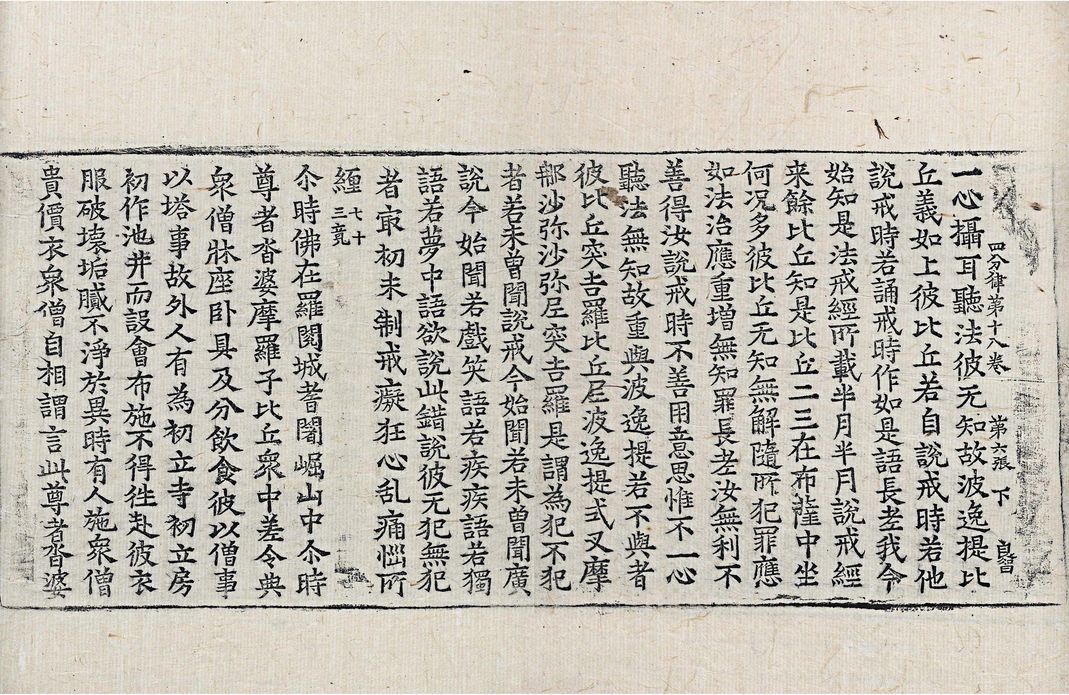 一心攝耳聽法彼无知故波逸提比
四分律第十八卷 第六張 下
丘義如上彼比丘若自說戒時若他
說戒時若誦戒時作如是語長老我今
始知是法戒經所載半月半月說戒經
来餘比丘知是比丘二三在布薩中坐
何况多彼比丘无知無解隨所犯罪應
如法治應重增無知罪長老汝無利不
善得汝說戒時不善用意思惟不一心
聽法無知故重與波逸提若不與者
彼比丘突吉羅比丘尼波逸提式叉摩
那沙弥沙弥尼突吉羅是謂為犯不犯
者若未曾聞說戒今始聞若未曾聞廣
說今始聞若戲笑語若疾疾語若獨
語若夢中語欲說此錯說彼无犯無犯
者㝡初未制戒癡狂心乱痛惱所
纏 七十三竟
尒時佛在羅閱城耆闍崛山中尒時
尊者沓婆摩羅子比丘衆中差令典
衆僧牀座卧具及分飲食彼以僧事
以塔事故外人有為初立寺初立房
初作池井而設會布施不得徃赴彼衣
服破壞垢膩不淨於異時有人施衆僧
貴價衣衆僧自相謂言此尊者沓婆